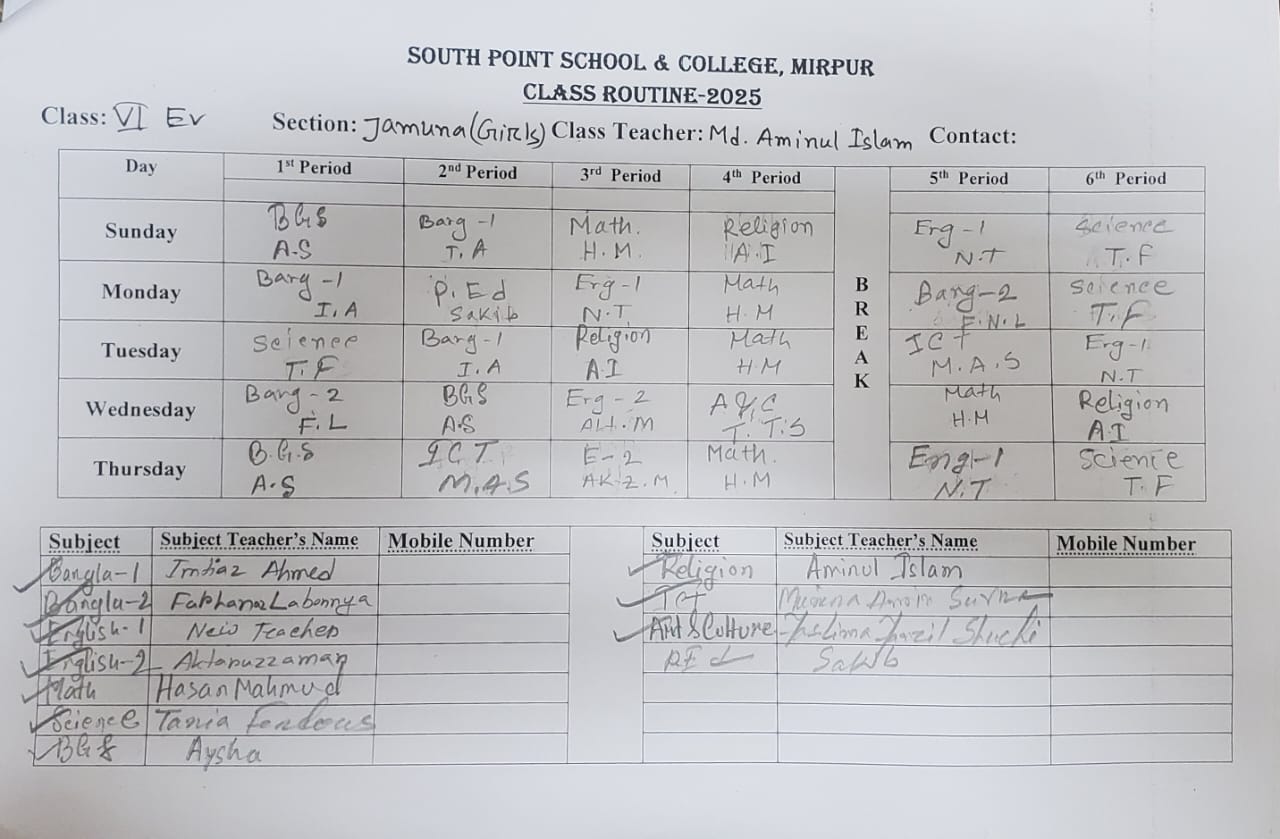 SOUTH POINT SCHOOL & COLLEGE, MIRPUR
CLASS ROUTINE-2025
Class: VI Ev Section: Jamuna (Girls) Class Teacher: Md. Aminul Islam Contact:
Day 1st Period 2nd Period 3rd Period 4th Period 5th Period 6th Period
Sunday BGS Bang-1 Math. Religion Eng-1 Science
A.S I.A H.M. A.I N.T T.F
Monday Bang-1 P.Ed Eng-1 Math Bang-2 Science
I.A Sakib N.T H.M F.N.L T.F
Tuesday Science Bang-1 Religion Math ICT Eng-1
T.F I.A A.I H.M M.A.S N.T
Wednesday Bang-2 BGS Eng-2 A&C Math Religion
F.L A.S T.T.S H.M A.I
Thursday B.G.S I.C.T E-2 Math. Eng-1 Science
A.S M.A.S AK.Z.M H.M N.T T.F
BREAK
Subject Subject Teacher's Name Mobile Number
Bangla-1 Imtiaz Ahmed
Bangla-2 Farhana Labonnya
English-1 New Teacher
English-2 Aktaruzzaman
Math Hasan Mahmud
Science Tania Ferdous
BGS Aysha
Subject Subject Teacher's Name Mobile Number
Religion Aminul Islam
ICT
Art & Culture
P.Ed Sakib